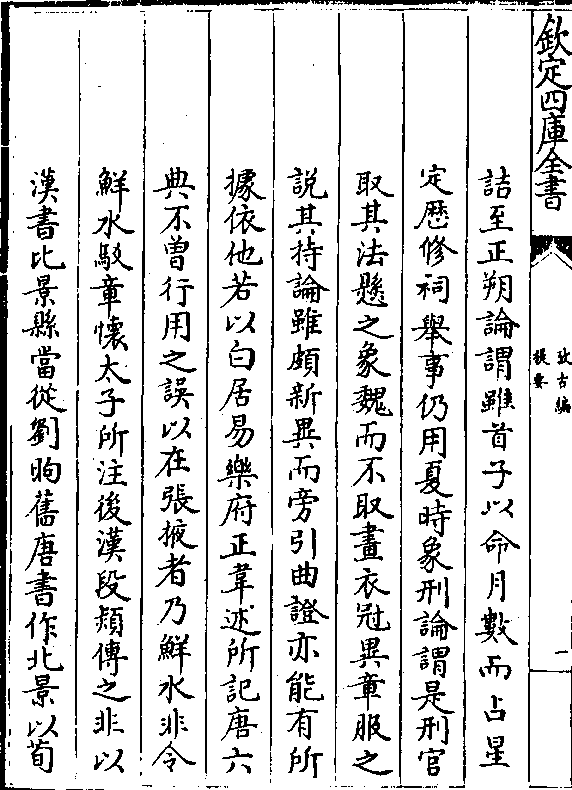 欽定四庫全書
攷古編
提要
二
詰至正朔論謂雖首子以命月數而占星
定歴修祠舉事仍用夏時象刑論謂是刑官
取其法懸之象魏而不取畫衣冠異章服之
說其持論雖頗新異而旁引曲證亦能有所
據依他若以白居易樂府正韋述所記唐六
典不曽行用之誤以在張掖者乃鮮水非令
鮮水駁章懷太子所注後漢段熲傳之非以
漢書比景縣當從劉昫舊唐書作北景以荀